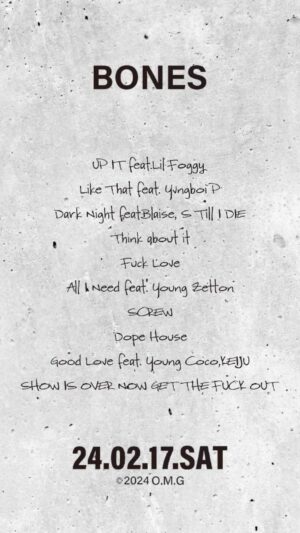 BONES
UP IT feat.Lil Foggy
Like That feat. YvngboiP
Dark Night feat.Blaise, S TiLL I DIE
Think about it
Fuck Love
All I Need feat. Young Zetton
SCREW
Dope House
Good Love feat. Young Coco,KEIJU
SHOW IS OVER NOW GET THE FUCK OUT
24.02.17.SAT
©2024 O.M.G